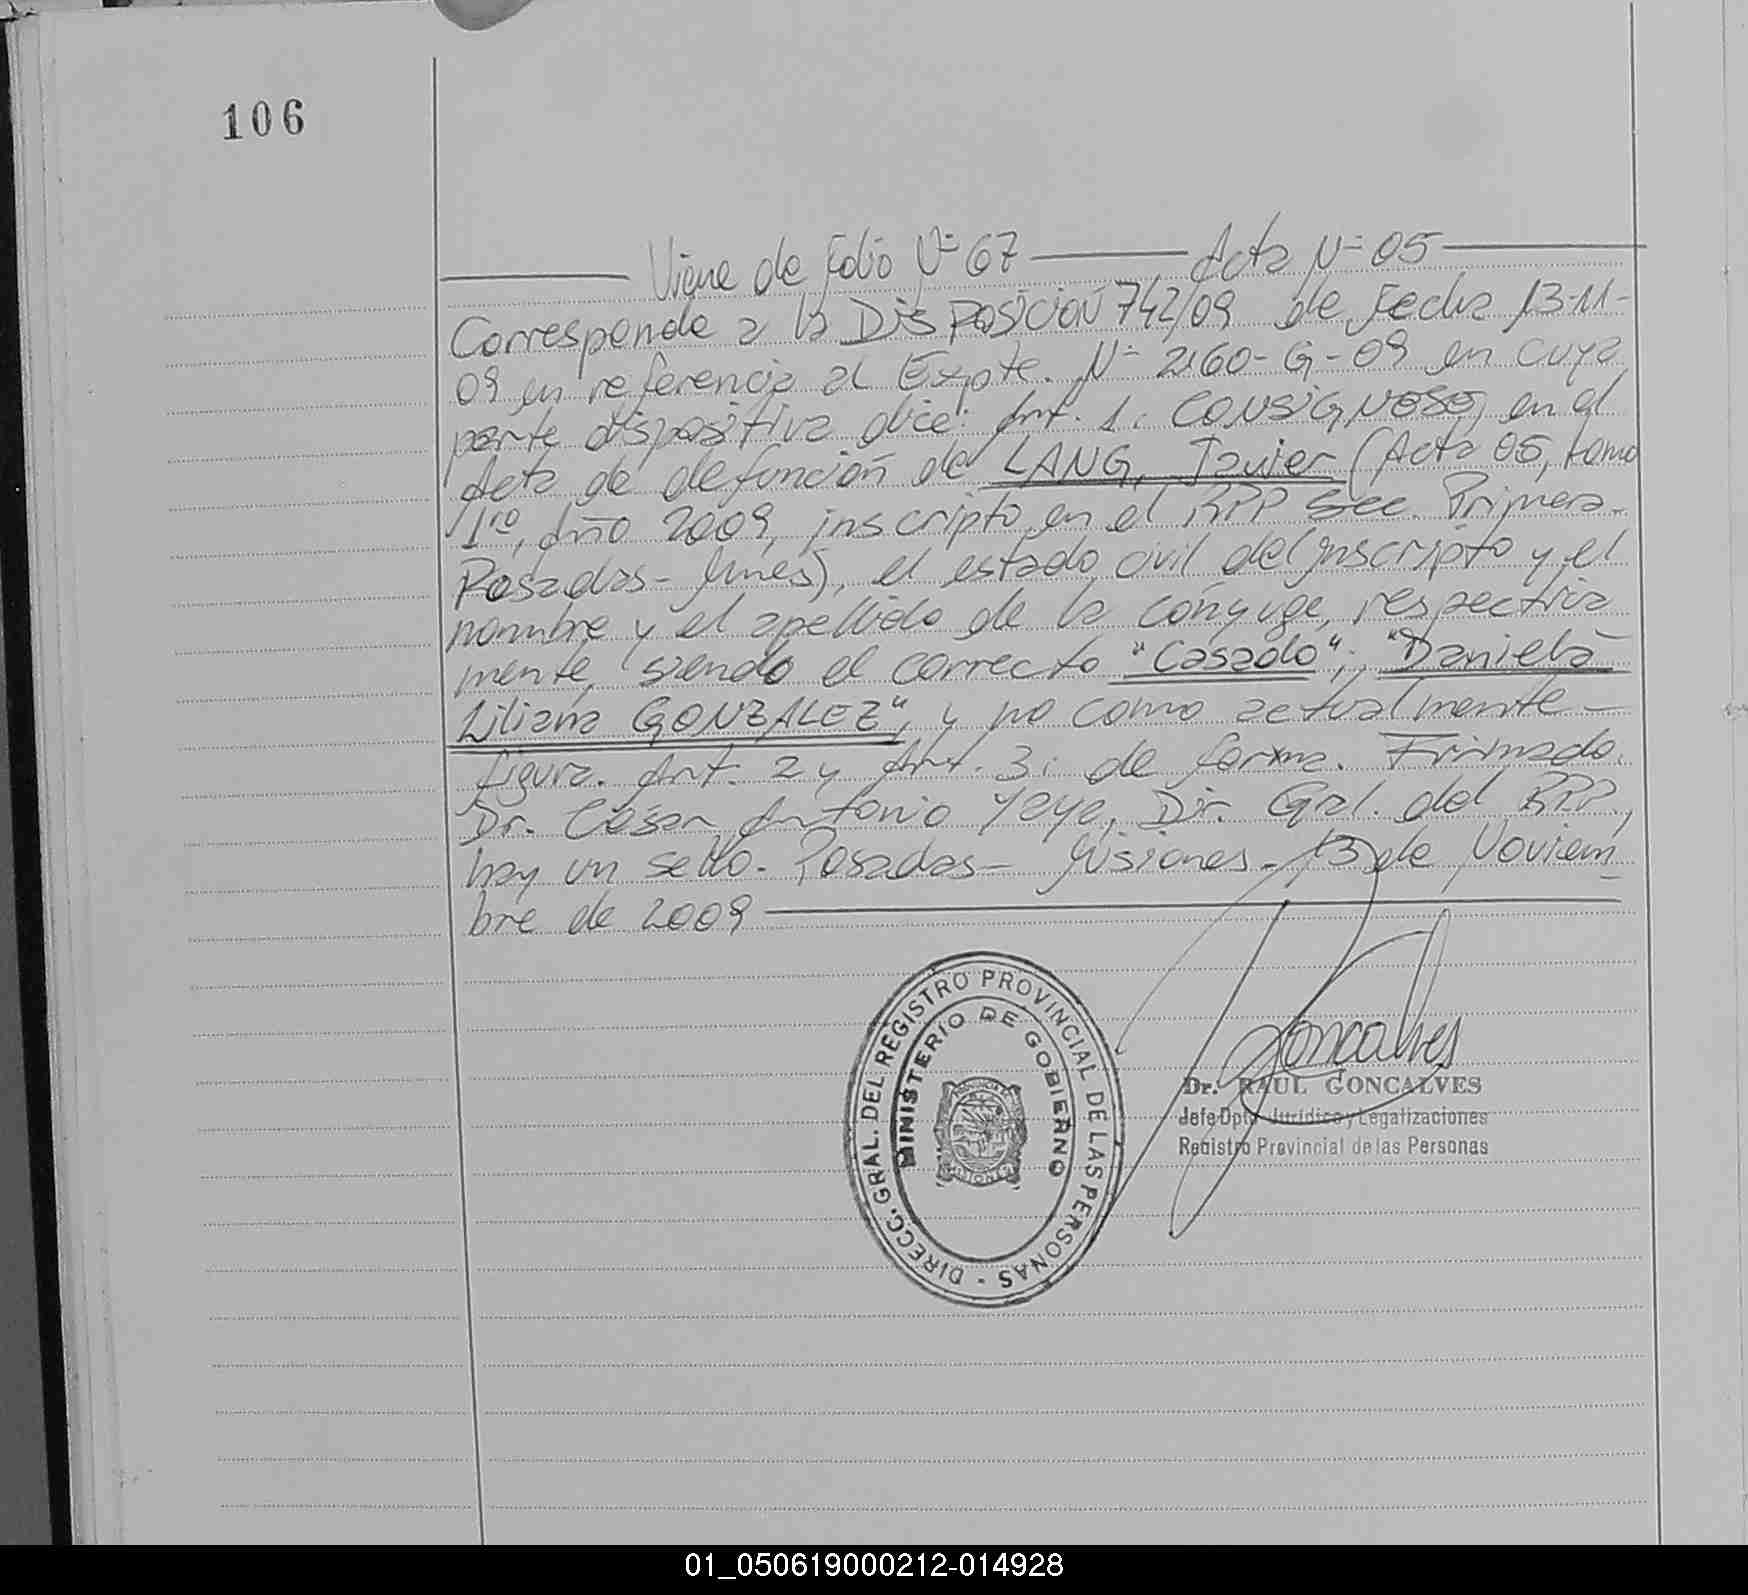 106
Viene de Folio Nº 67 Acta Nº 05
Corresponde a la DISPOSICIÓN 742/09 de Fecha 13-11-
09 en referencia al Expte. Nº 2160-G-09 en cuya
parte dispositiva dice: Art. 1: CONSIGNESE, en el
Acta de defunción de LANG, Javier (Acta 05, tomo
1ro, Año 2009, inscripto en el RPP Sec. Primera-
Posadas- Mnes), el estado civil del inscripto y el
nombre y el apellido de la cónyuge, respectiva
mente, siendo el correcto "Casado"; "Daniela
Liliana GONZALEZ", y no como actualmente -
figura. Art. 2 y Art. 3: de forma. Firmado.
Dr. César Antonio Yaya, Dir. Gral. del RPP,
hay un sello. Posadas- Misiones- 13 de Noviem
bre de 2009
DIRECC. GRAL. DEL REGISTRO PROVINCIAL DE LAS PERSONAS -
MINISTERIO DE GOBIERNO
MISIONES
Goncalves
Dr. RAUL GONCALVES
Jefe Dpto Jurídico y Legalizaciones
Registro Provincial de las Personas
01_050619000212-014928